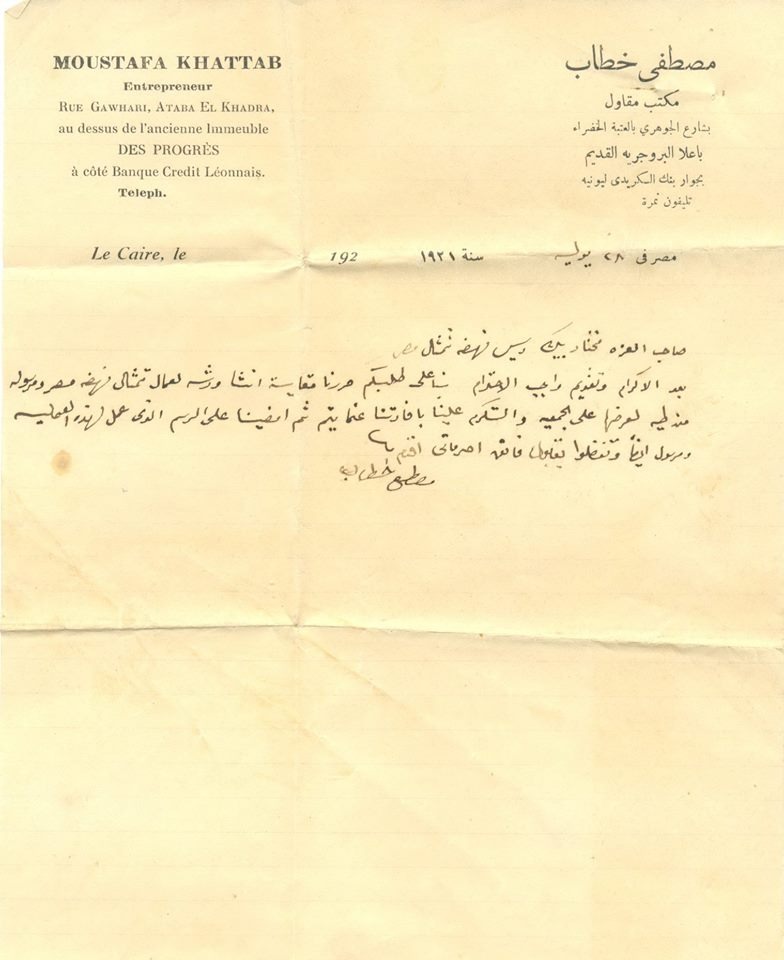 MOUSTAFA KHATTAB
Entrepreneur
RUE GAWHARI, ATABA EL KHADRA,
au dessus de l'ancienne Immeuble
DES PROGRÈS
à côté Banque Credit Léonnais.
Teleph.
مصطفى خطاب
مكتب مقاول
بشارع الجوهري بالعتبة الخضراء
باعلا البروجريه القديم
بجوار بنك السكريدى ليونيه
تليفون نمرة
Le Caire, le 192
مصر فى ٢٨ يوليه سنة ١٩٢١
صاحب العزه مختار بيك ريس نهضه تمثال مصر
بعد الاكرام وتقديم واجب الاحترام بناء على طلبكم حررنا مقايسة انشا ورشه لعمال تمثال نهضه مصر ومرسوله
منطيه لعرضها على الجمعيه والتكرم علينا بافادتنا عما يتم ثم امضينا على الرسم الذى عمل لهذه العمليه
ومرسول ايضا وتفضلوا بقبول فائق احترماتى افندم
مصطفى خطاب